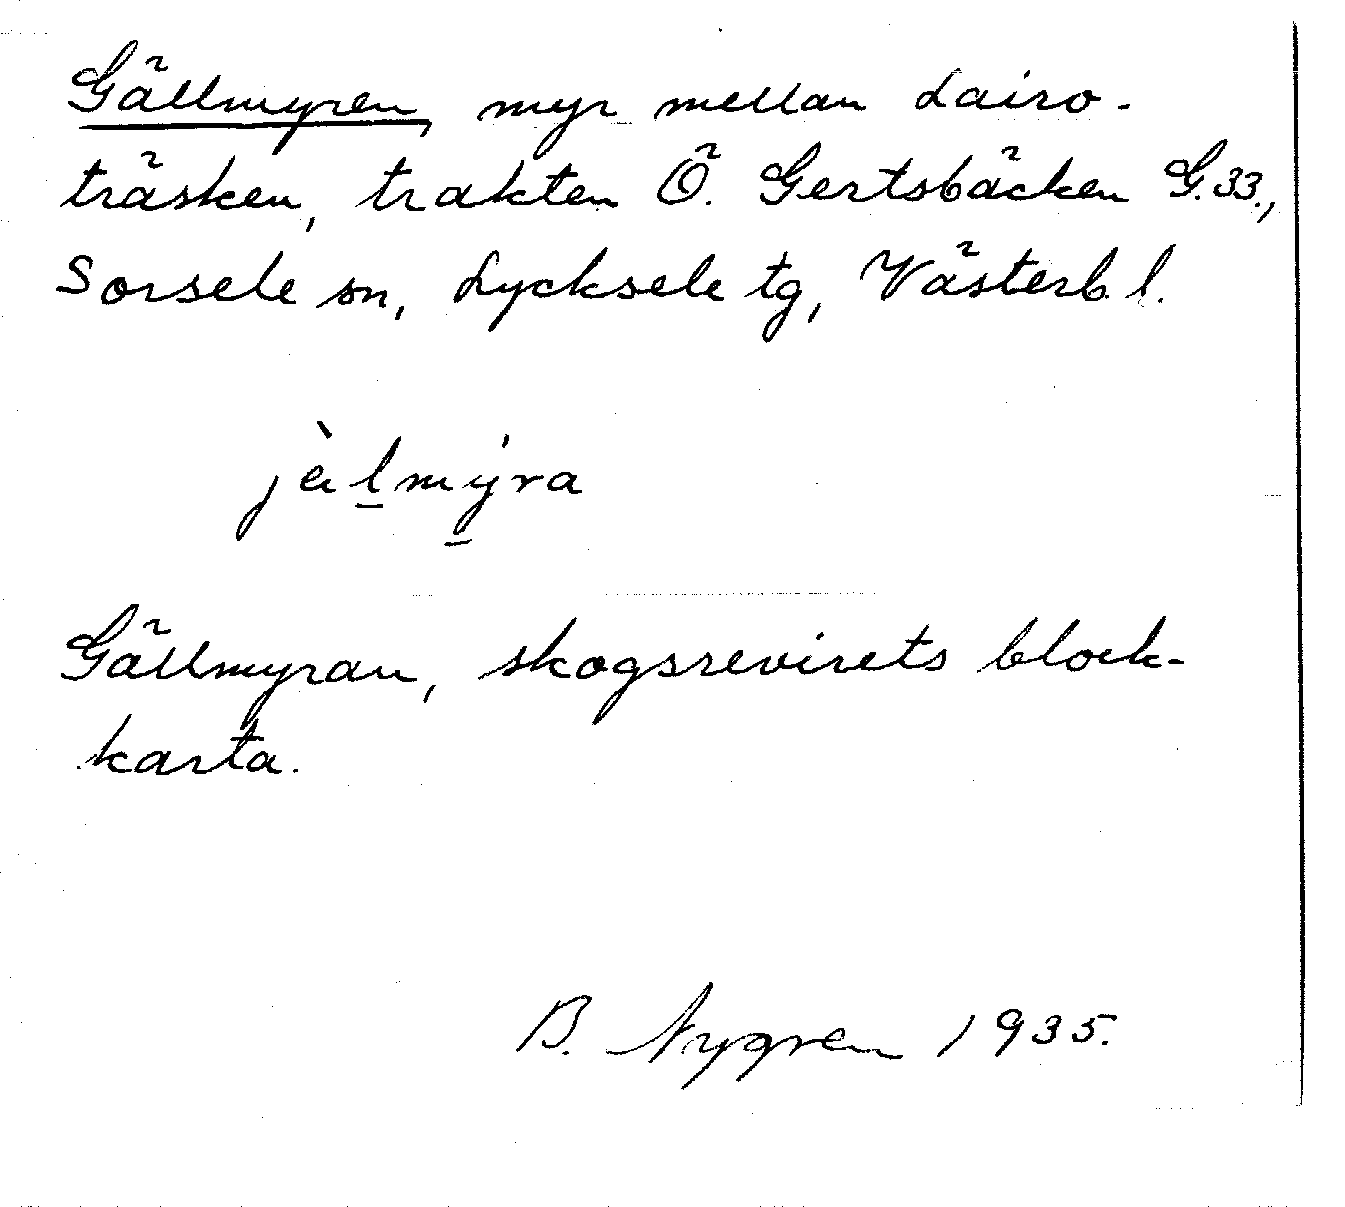 Gällmyren, myr mellan Lairo-
träsken, trakten Ö. Gertsbäcken G.33.,
Sorsele sn, Lycksele tg, Västerb. l.
jèl̲mý̲ra
Gällmyran, skogsrevirets block-
karta.
B. Nygren 1935.